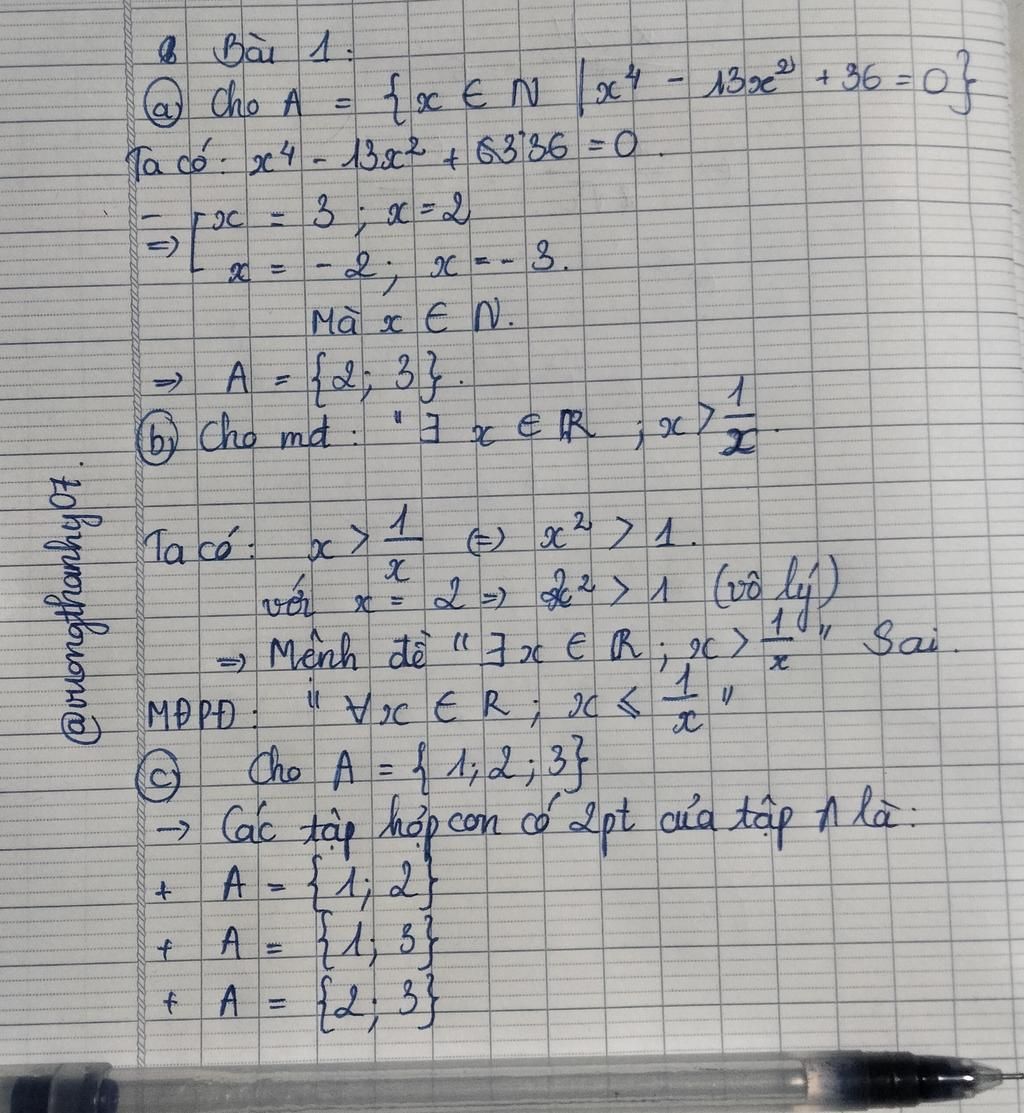 Bài 1:
a) Cho A = {x ∈ N | x⁴ - 13x² + 36 = 0}
Ta có: x⁴ - 13x² + 6336 = 0.
⇒ [x = 3; x = 2
x = -2; x = -3.
Mà x ∈ N.
⇒ A = {2; 3}.
b) Cho md: "∃ x ∈ ℝ; x > 1/x.
Ta có: x > 1/x ⇔ x² > 1.
với x = 2 ⇒ 2² > 1 (vô lý)
⇒ Mệnh đề "∃x ∈ ℝ; x > 1/x" Sai.
MĐPĐ: "∀x ∈ R; x ≤ 1/x"
c) Cho A = {1; 2; 3}
→ Các tập hợp con có 2pt của tập A là:
+ A = {1; 2}
+ A = {1; 3}
+ A = {2; 3}
@vuongthanhhy07.